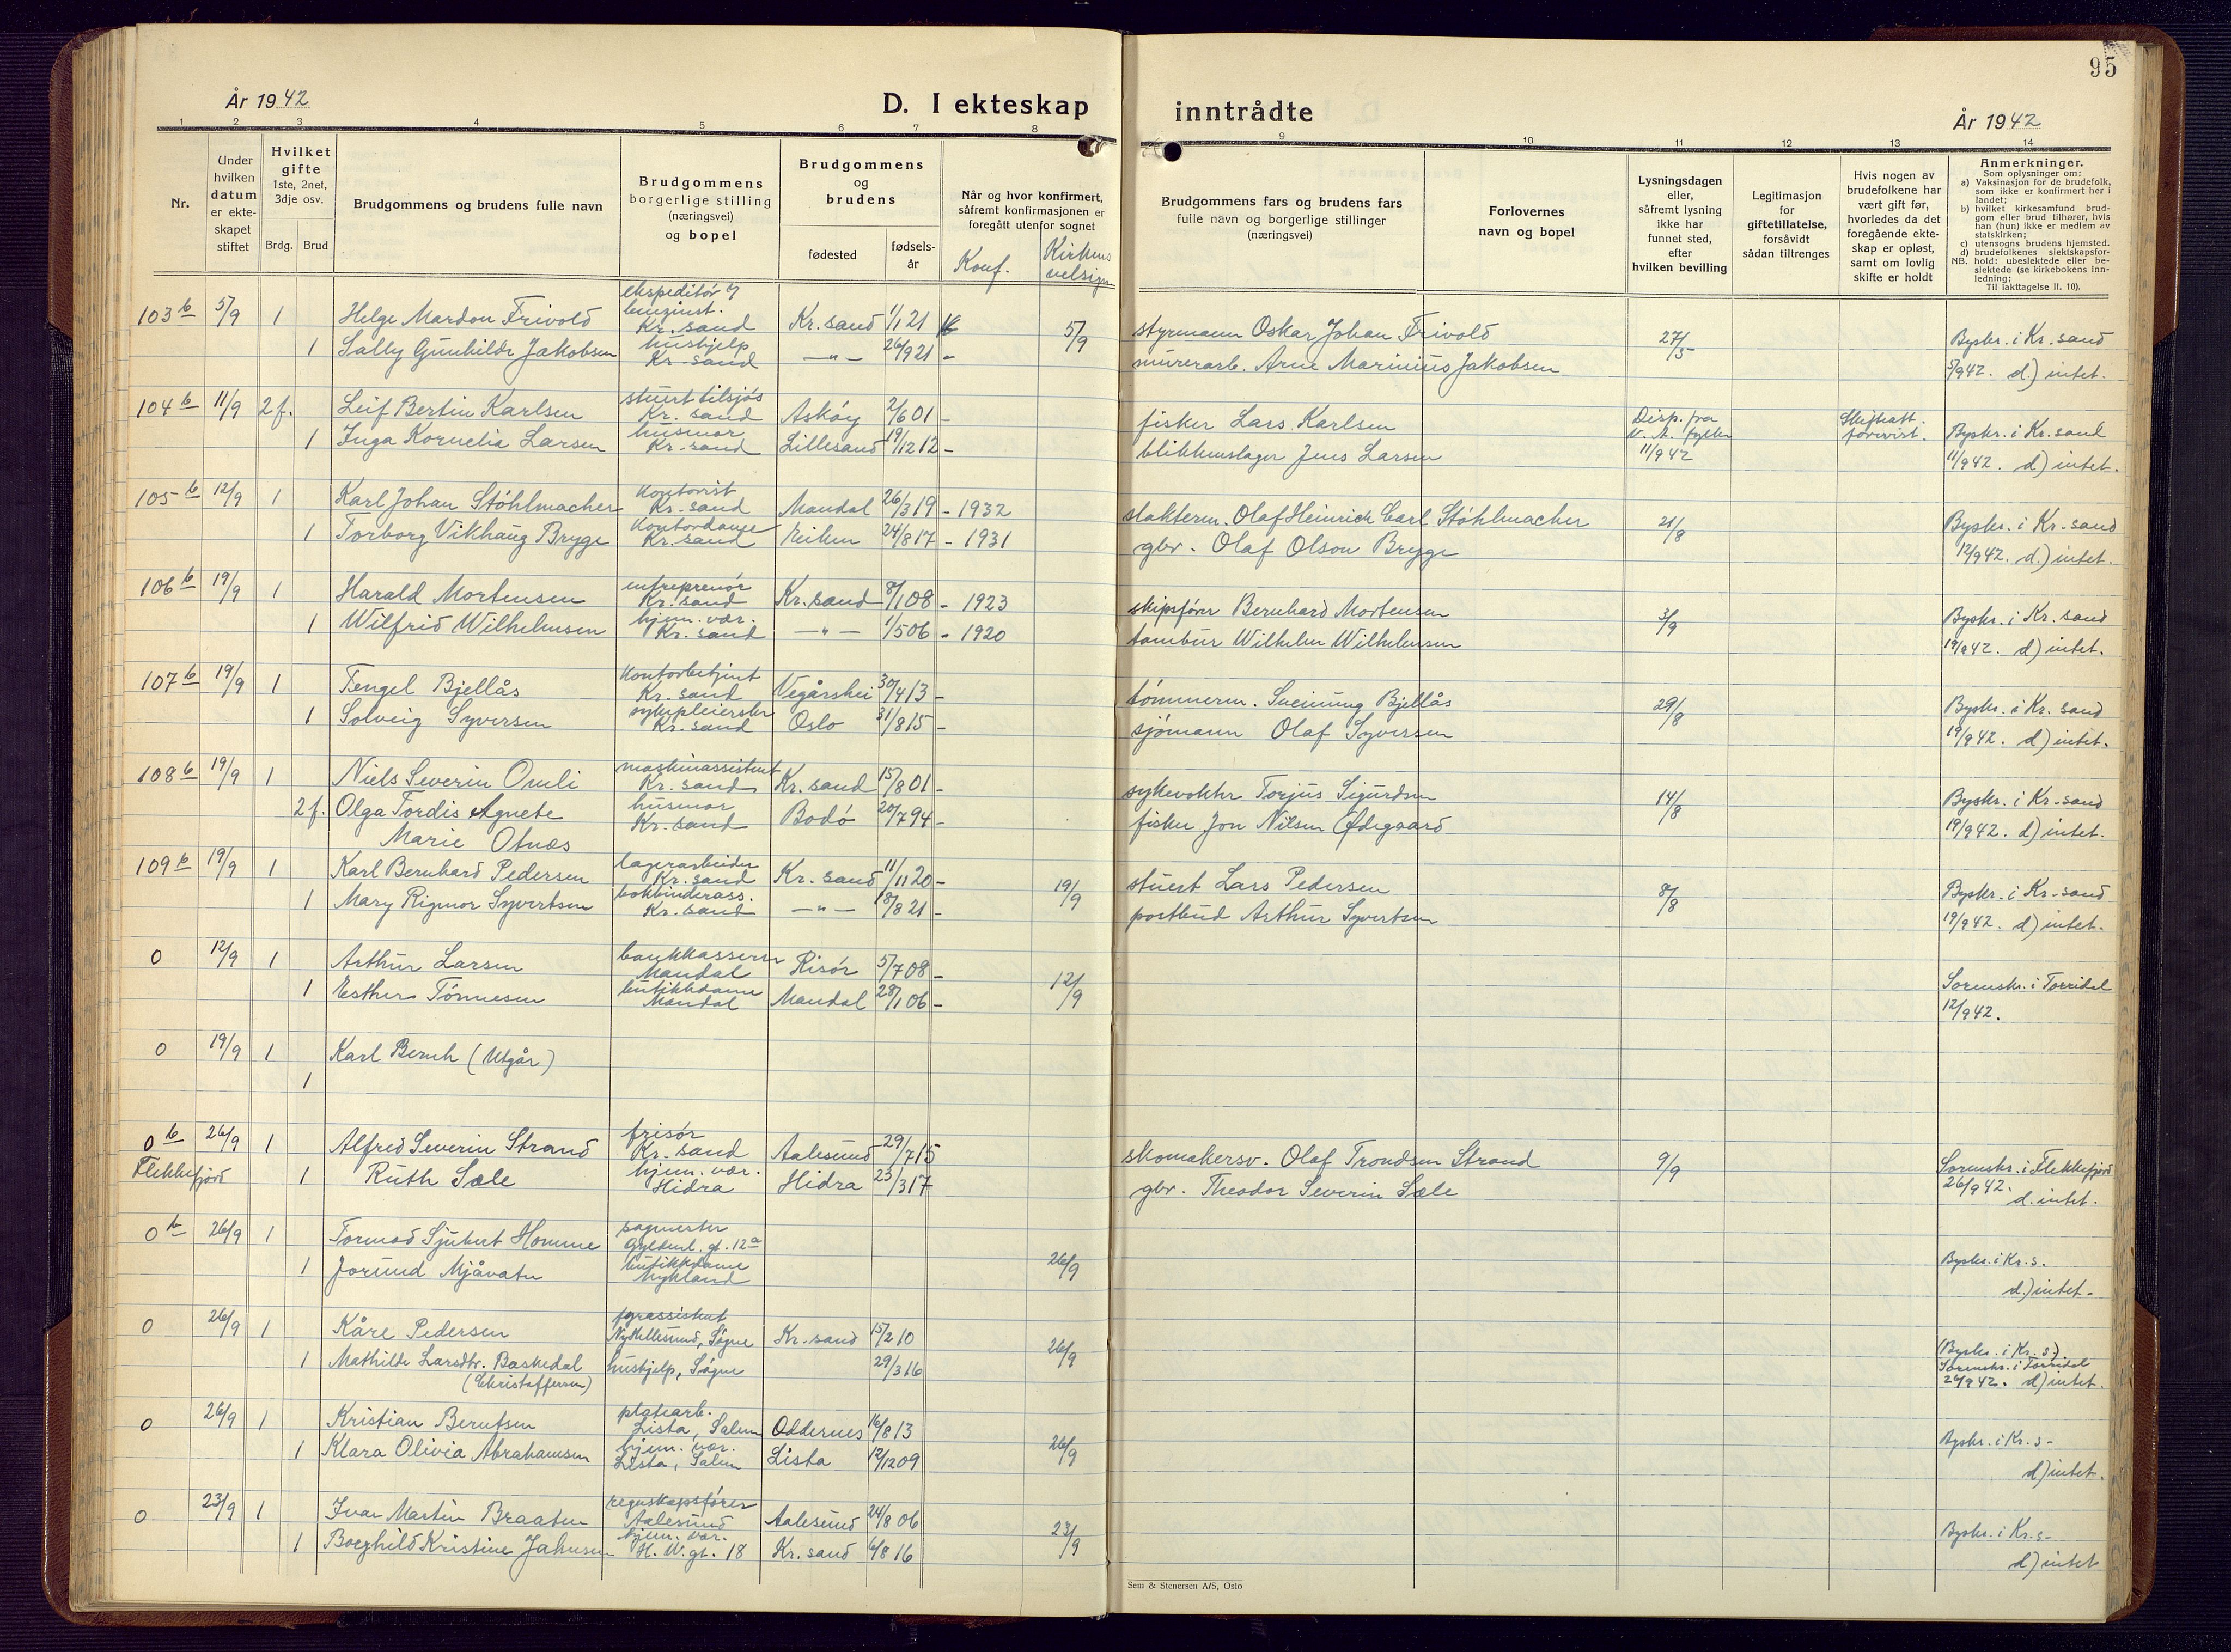 95
År 1942
D. I ekteskap inntrådte
År 1942
1 2 3 4 5 6 7 8 9 10 11 12 13 14
Nr.
Under hvilken datum er ekteskapet stiftet
Hvilket gifte 1ste, 2net, 3dje osv.
Brdg. Brud
Brudgommens og brudens fulle navn
Brudgommens borgerlige stilling (næringsvei) og bopel
Brudgommens og brudens
fødested
fødselsår
Når og hvor konfirmert, såfremt konfirmasjonen er foregått utenfor sognet
Konf.
Kirkens velsign.
Brudgommens fars og brudens fars fulle navn og borgerlige stillinger (næringsvei)
Forlovernes navn og bopel
Lysningsdagen eller, såfremt lysning ikke har funnet sted, efter hvilken bevilling
Legitimasjon for giftetillatelse, forsåvidt sådan tiltrenges
Hvis nogen av brudefolkene har vært gift før, hvorledes da det foregående ekteskap er opløst, samt om lovlig skifte er holdt
Anmerkninger.
Som oplysninger om:
a) Vaksinasjon for de brudefolk, som ikke er konfirmert her i landet;
b) hvilket kirkesamfund brudgom eller brud tilhører, hvis han (hun) ikke er medlem av statskirken;
c) utensogns brudens hjemsted.
d) brudefolkenes slektskapsforhold: ubeslektede eller beslektede (se kirkebokens Innledning;
NB.
Til iakttagelse II. 10).
103 b 5/9 1 Helge Mardon Frivold ekspeditør Kr.sand Kr.sand 1/1 21 5/9 styrmann Oskar Johan Frivold 27/5 Byskr. i Kr.sand
1 Sally Gunhilde Jakobsen hushjelp Kr.sand —„— 26/9 21 - murerarb. Arne Marinius Jakobsen 5/9 42. d.) intet.
104 b 11/9 2 f. Leif Bertin Karlsen stuert tilsjøs Kr.sand Askøy 2/6 01 - fisker Lars Karlsen Disp. fra V. A. fylke 11/9 42 Skifteatt. forevist. Byskr. i Kr.sand
1 Inga Kornelia Larsen husmor Kr.sand Lillesand 19/12 12 - blikkenslager Jens Larsen 11/9 42. d) intet.
105 b 12/9 1 Karl Johan Støhlmacher kontorist Kr.sand Mandal 26/3 19 - 1932 slakterm. Olaf Heinrich Carl Støhlmacher 21/8 Byskr. i Kr.sand
1 Torborg Vikhaug Bryge Kontordame Kr.sand Eiken 24/8 17 - 1931 gbr. Olaf Olson Bryge 12/9 42. d.) intet.
106 b 19/9 1 Harald Mortensen entreprenør Kr.sand Kr.sand 8/1 08 - 1923 skipsfører Bernhard Mortensen 3/9 Byskr. i Kr.sand
1 Wilfrid Wilhelmsen hjem. vær. Kr.sand —„— 1/5 06 - 1920 tambur Wilhelm Wilhelmsen 19/9 42. d) intet.
107 b 19/9 1 Tengel Bjellås Kontorbetjent Kr.sand Vegårshei 30/4 13 - tømmerm. Sveinung Bjellås 29/8 Byskr. i Kr.sand
1 Solveig Syversen sykepleierske Kr.sand Oslo 31/8 15 - sjømann Olaf Syversen 19/9 42. d) intet.
108 b 19/9 1 Niels Severin Omli maskinassistent Kr.sand Kr.sand 15/8 01 - sykevokter Torjus Sigurdsen 14/8 Byskr. i Kr.sand
2 f. Olga Tordis Agnete husmor Kr.sand Bodø 20/7 94 - fisker Jon Nilsen Ødegaard 19/9 42. d) intet.
Marie Otnæs
109 b 19/9 1 Karl Bernhard Pedersen lagerarbeider Kr.sand Kr.sand 11/11 20 - 19/9 stuert Lars Pedersen 8/8 Byskr. i Kr.sand
1 Mary Rigmor Syvertsen bokbinderass. Kr.sand —„— 18/8 21 - postbud Arthur Syvertsen 19/9 42. d) intet.
0 12/9 1 Arthur Larsen bankkasserer Mandal Risør 5/7 08 - 12/9 Sorenskr. i Torridal
1 Esther Tønnesen butikkdame Mandal Mandal 28/1 06 - 12/9 42.
0 19/9 1 Karl Bernh (Utgår)
1
0 b 26/9 1 Alfred Severin Strand frisør Kr.sand Aalesund 29/7 15 skomakersv. Olaf Trondsen Strand 9/9 Sorenskr. i Flekkefjord
Flekkefjord 1 Ruth Sæle hjem. vær. Hidra Hidra 23/3 17 gbr. Theodor Severin Sæle 26/9 42. d. intet.
0 b 26/9 1 Tormod Sjubert Homme sagmester Gyldenl. gt. 12a 26/9 Byskr. i Kr. s.
1 Jorund Mjåvatn butikkdame Mykland d.) intet.
0 26/9 1 Kåre Pedersen Ny Hellesund, Søgne Kr.sand 15/2 10 26/9 (Byskr. i Kr. s.)
1 Mathilde Larsdtr. Baskedal hushjelp, Søgne 29/3 16 Sorenskr. i Torridal
(Christoffersen) 26/9 42. d) intet.
0 26/9 1 Kristian Berntsen platearb. Lista, Salem Oddernes 16/8 13 26/9 Byskr. i Kr. s-
1 Klara Olivia Abrahamsen hjem. vær. Lista, Salem Lista 12/12 09 d) intet.
0 23/9 1 Ivar Martin Braaten regnskapsfører Aalesund Aalesund 24/8 06 23/9 Byskr. i Kr. s-
1 Borghild Kristine Jahnsen hjem. vær. H. W. gt. 18 Kr.sand 6/8 16 d) intet
Sem & Stenersen A/S, Oslo